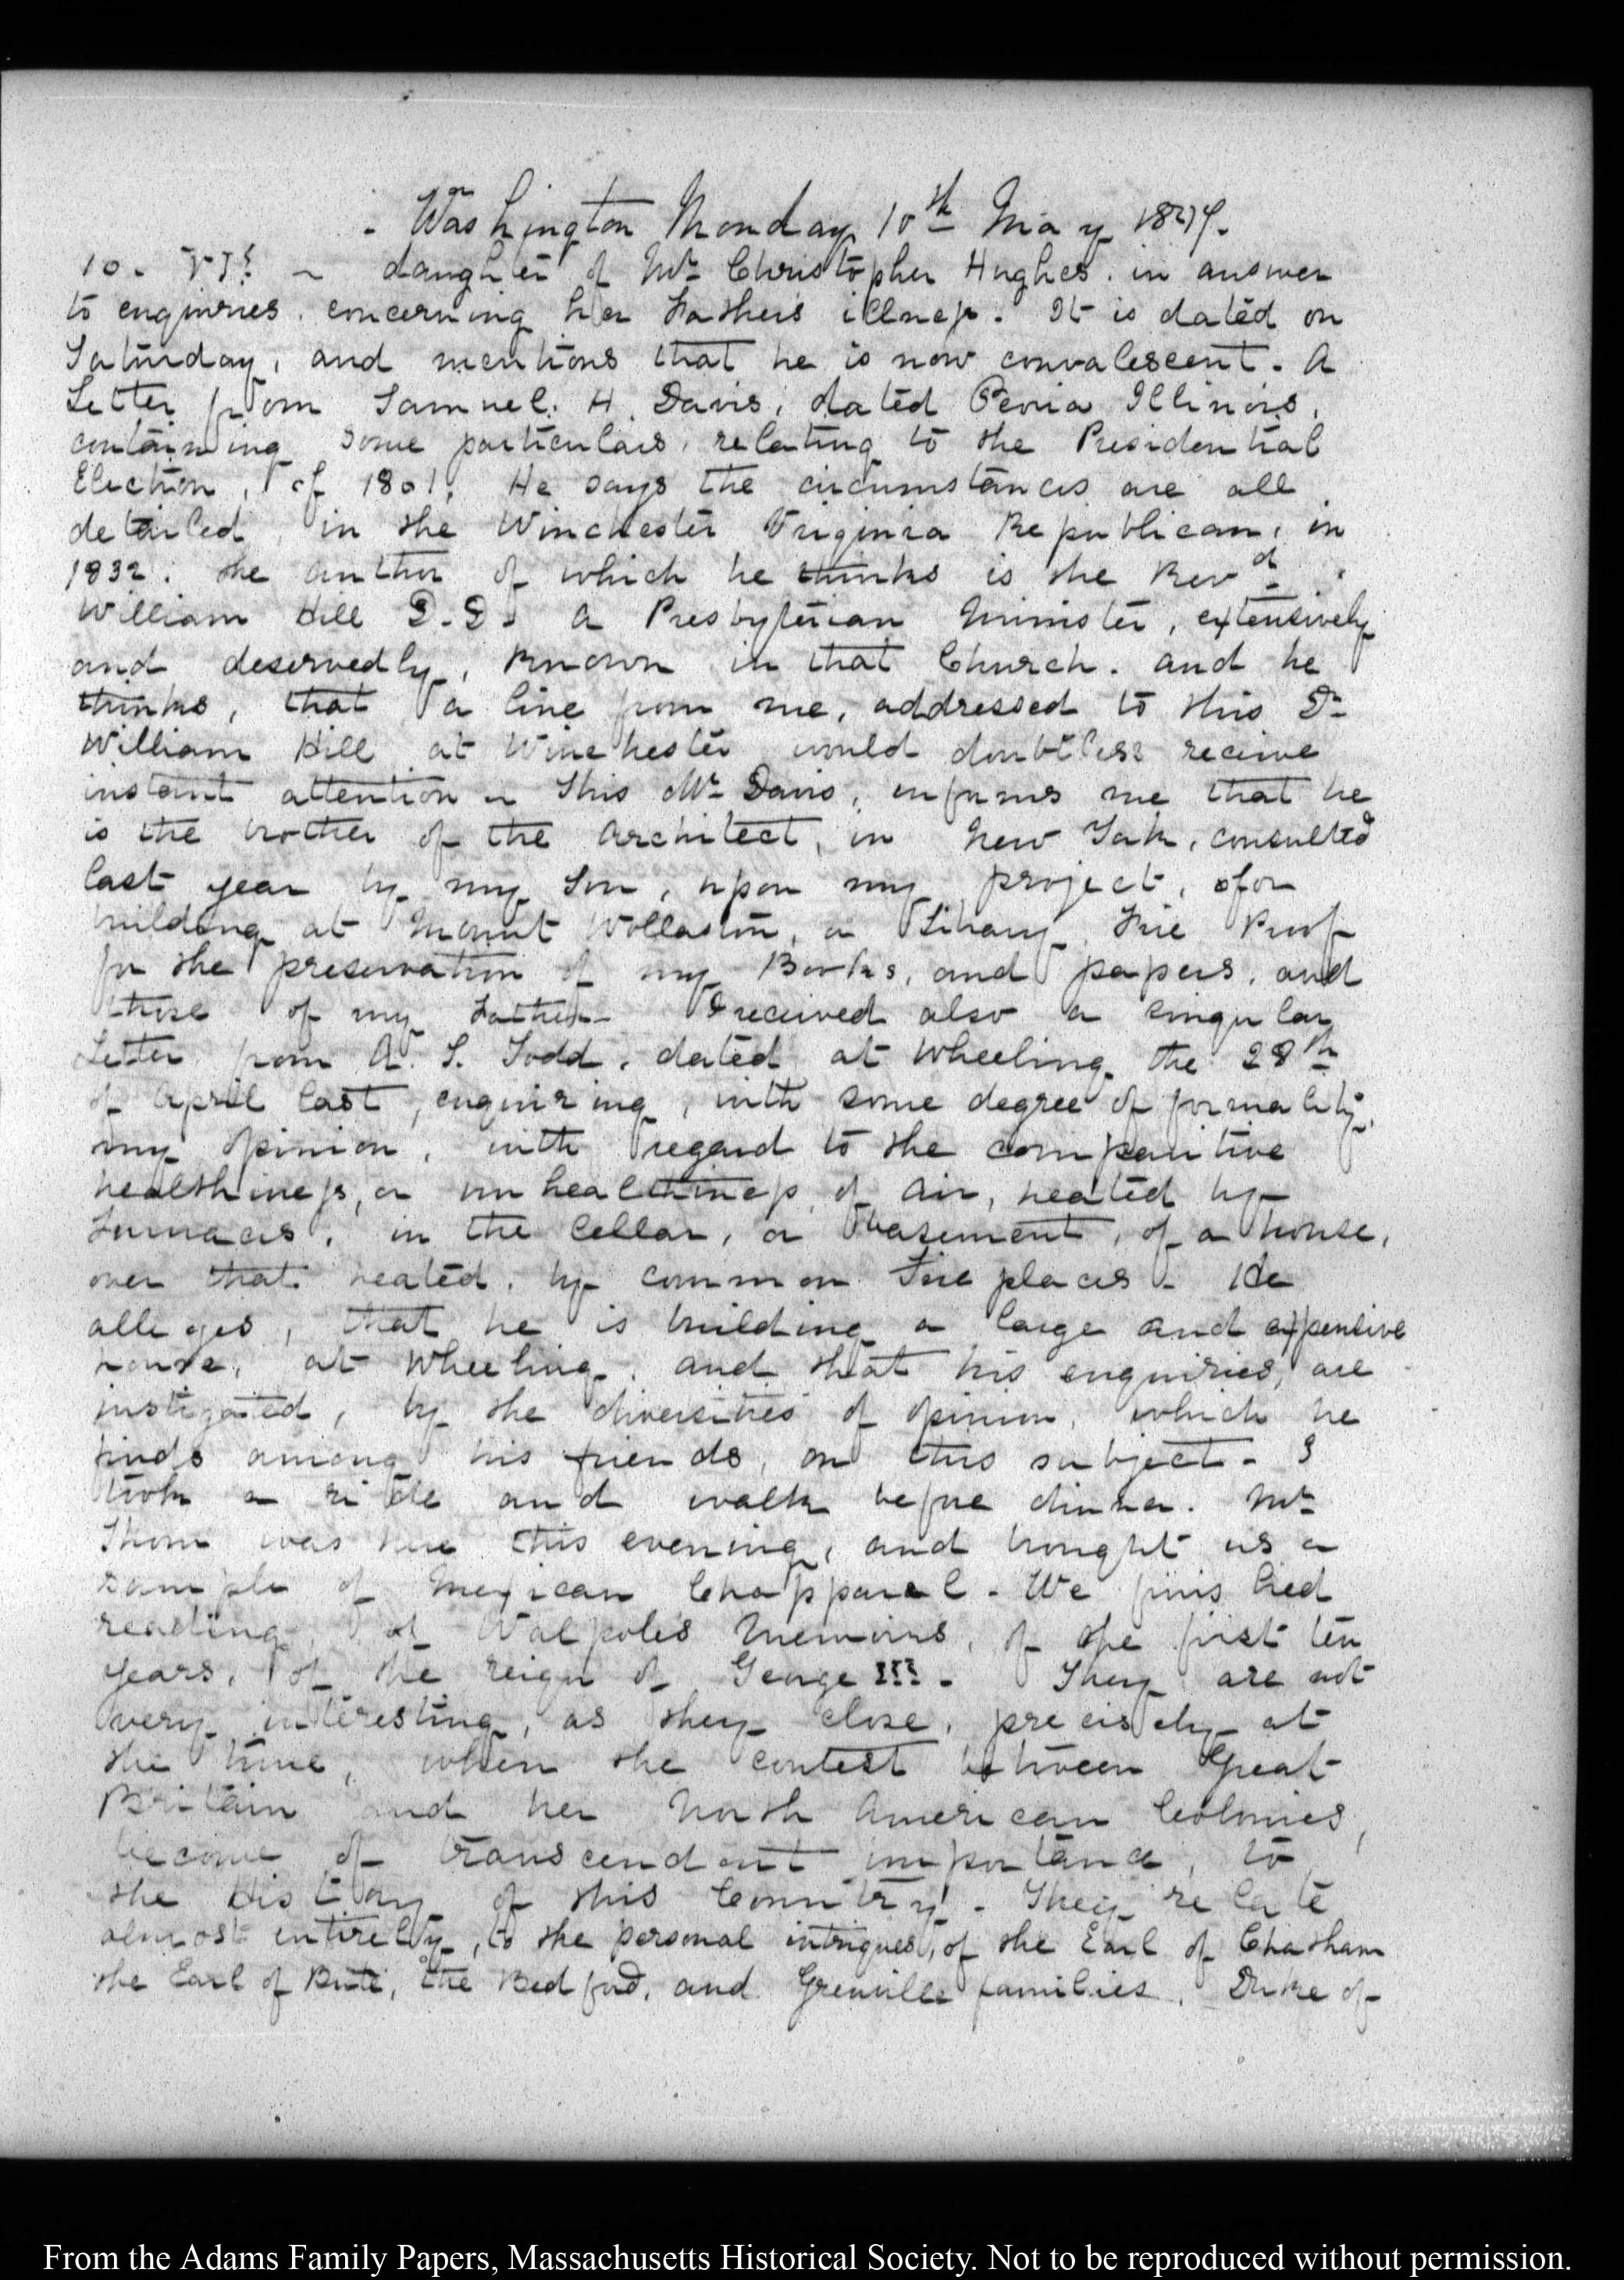 - Washington Monday 10th May 1847.
10. VI: ~ daughter of Mr Christopher Hughes. in answer
to enquiries. concerning her Father's illness. It is dated on
Saturday, and mentions that he is now convalescent. A
Letter from Samuel. H. Davis, dated Peoria Illinois,
containing some particulars, relating to the Presidential
Election, of 1801, He says the circumstances are all
detailed, in the Winchester Virginia Republican, in
1832. the author of which he thinks is the Revd
William Hill D.D. a Presbyterian Minister, extensively
and deservedly, known in that Church. and he
thinks, that a line from me, addressed to this Dr
William Hill at Winchester would doubtless receive
instant attention ~ This Mr Davis, informs me that he
is the brother of the Architect, in New York, consulted
last year by my Son, upon my project, for
building at Mount Wollaston, a Library, Fire Proof
for the preservation of my Books, and papers, and
those of my Father - I received also a singular
Letter from A. S. Todd, dated at Wheeling the 28th
of April last, enquiring, with some degree of formality,
my opinion, with regard to the comparitive
healthiness, or unhealthiness of Air, heated by
Furnaces, in the Cellar, or basement, of a house,
over that heated, by common Fire places - He
alleges, that he is building a large and expensive
house, at Wheeling, and that his enquiries, are
instigated, by the diversities of opinion, which he
finds among his friends, on this subject - I
took a ride and walk before dinner. Mr
Thom was here this evening, and brought us a
sample of Mexican Chapparel - We finished
reading, of Walpole's Memoirs, of the first ten
years, of the reign of George III - They are not
very interesting, as they close, precisely at
the time, when the contest between Great
Britain and her North American Colonies,
become of transcendant importance, to
the History of this Country - They relate
almost entirely, to the personal intrigues, of the Earl of Chatham
the Earl of Bute, the Bedford, and Grenville families, Duke of
From the Adams Family Papers, Massachusetts Historical Society. Not to be reproduced without permission.